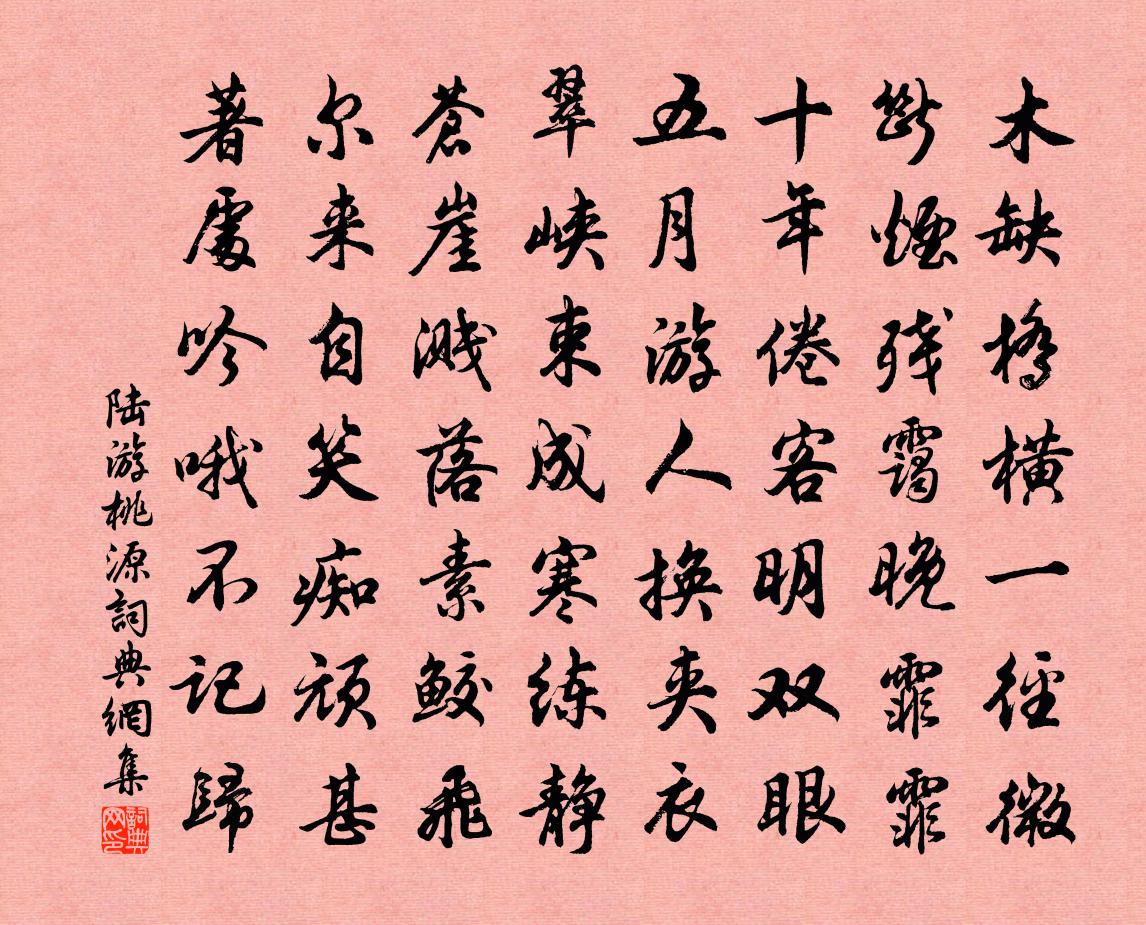 木缺橋横一径微
斷煙残靄晚霏霏
十年倦客明双眼
五月游人换夹衣
翠峡束成寒练静
蒼崖溅落素鲛飛
尔来自笑痴顽甚
著處吟哦不记歸
陆游桃源詞典網集
詞典网印